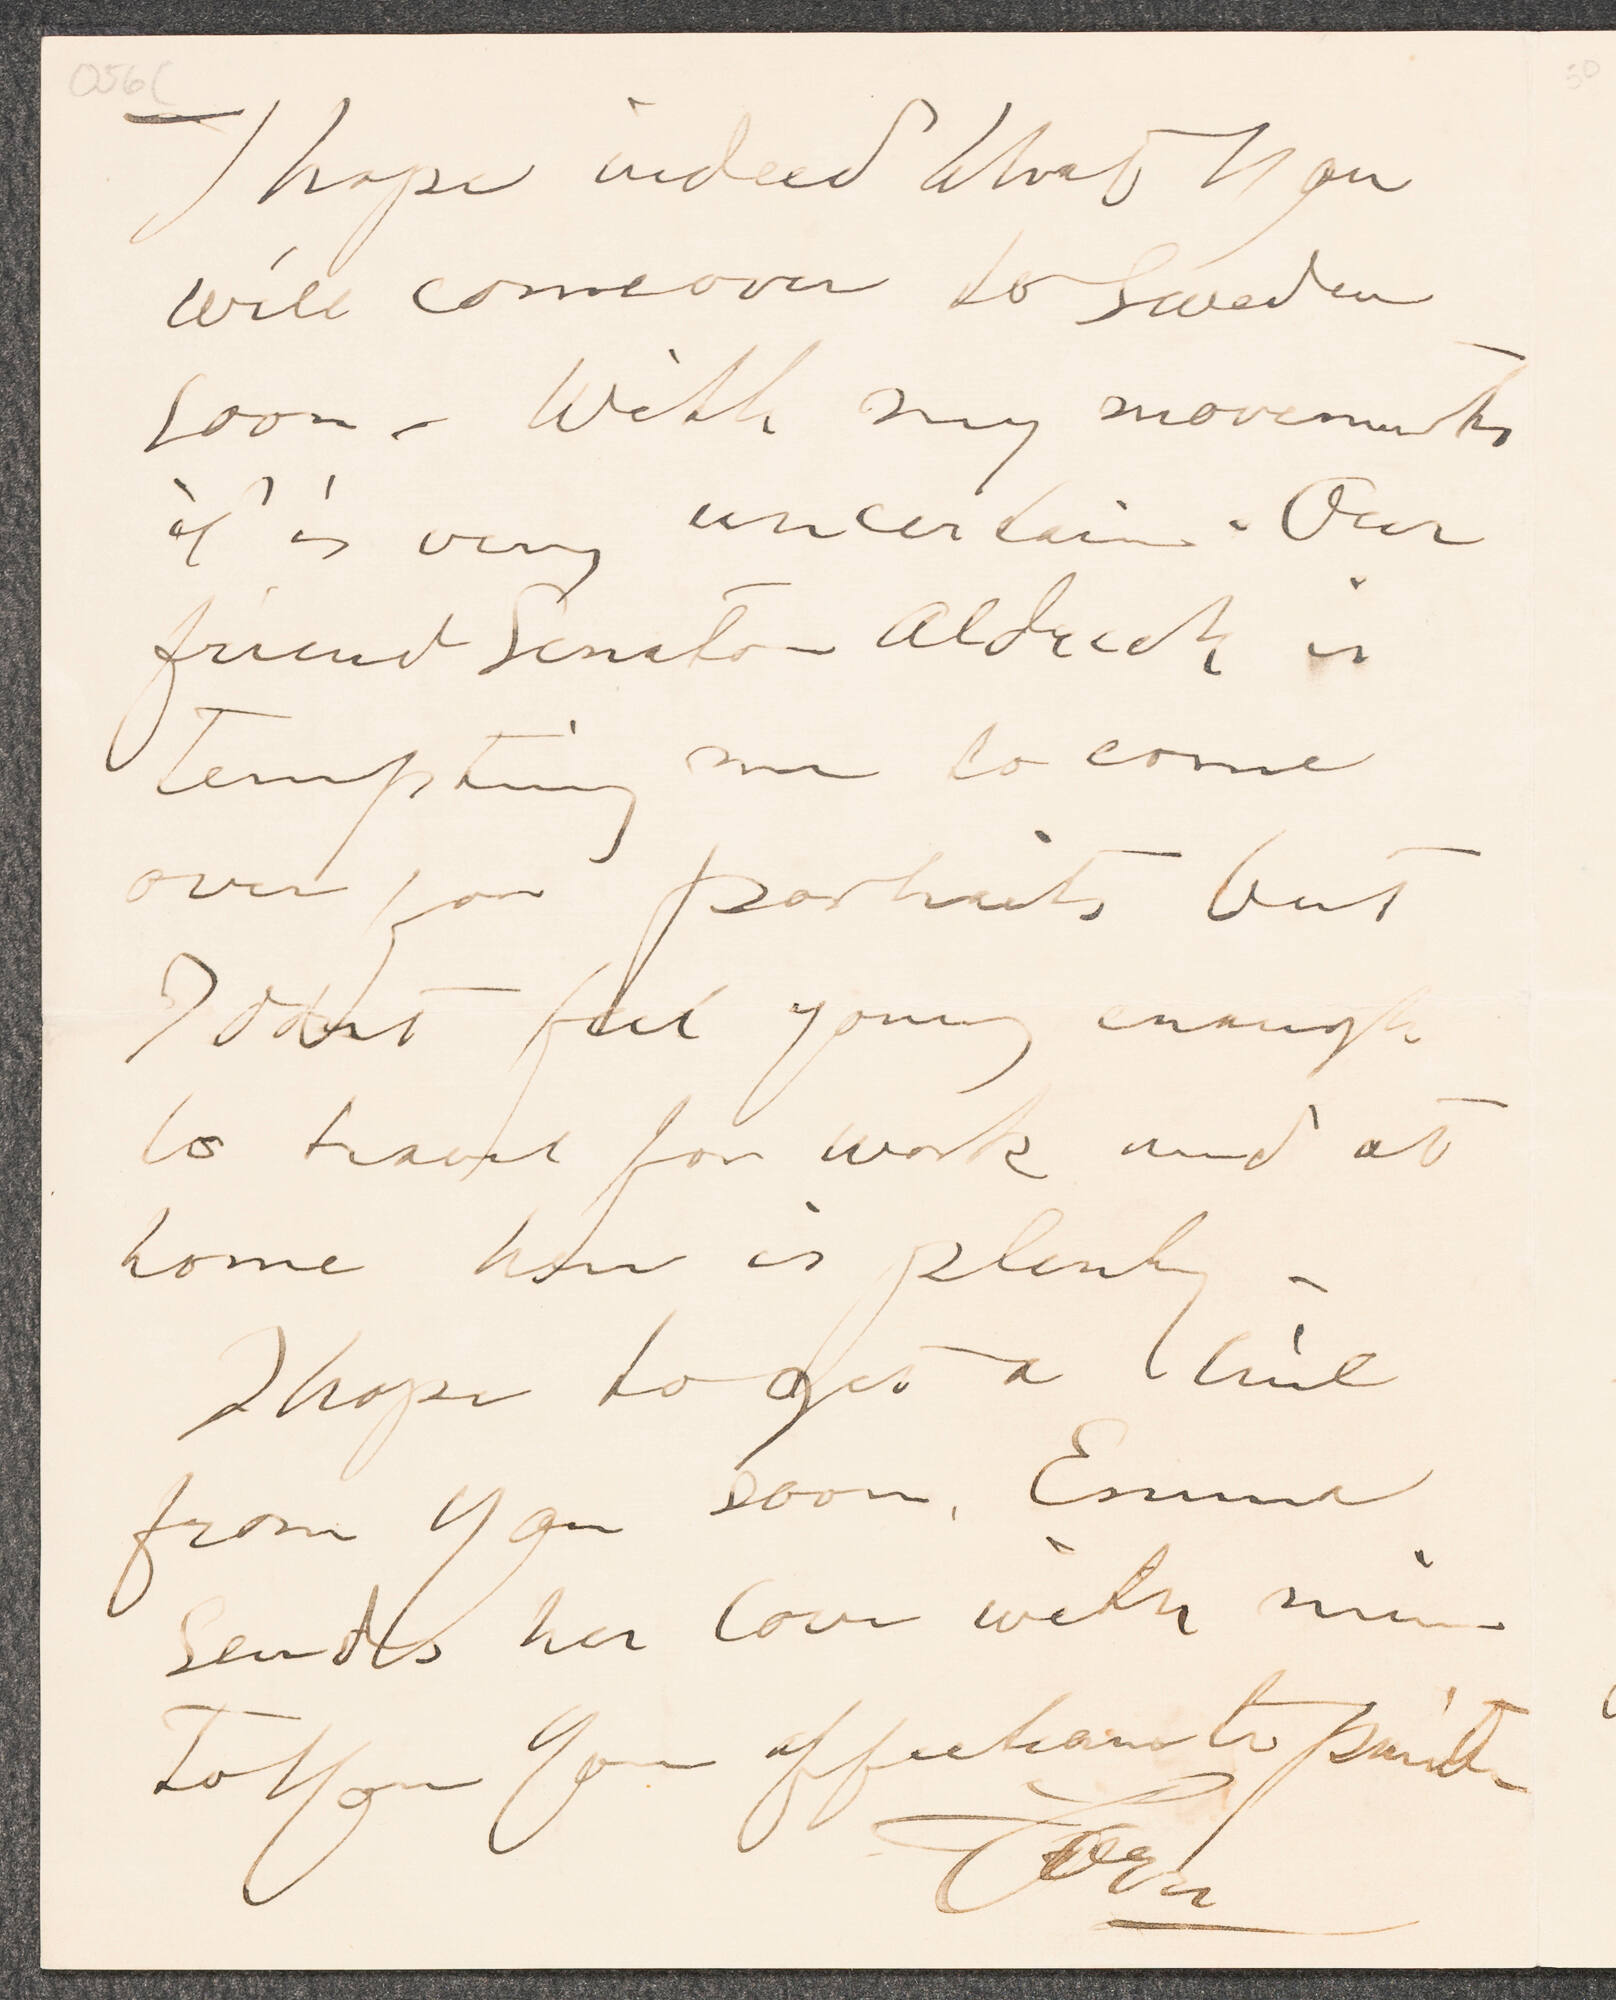 056C
I hope indeed that You
will come over to Sweden
soon - With my movements
it is very uncertain. Our
friend Senator Aldrich is
tempting me to come
over for portraits but
I don't feel young enough
to travel for work and at
home here is plenty -
I hope to get a line
from You soon, Emma
sends her love with mine
to You Your affectionate painter
Zorn